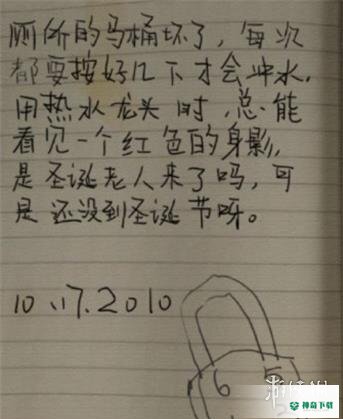 厕所的马桶坏了，每次
都要按好几下才会冲水，
用热水龙头时，总能
看见一个红色的身影，
是圣诞老人来了吗，可
是还没到圣诞节呀。
10.17.2010
6 5
神奇下载